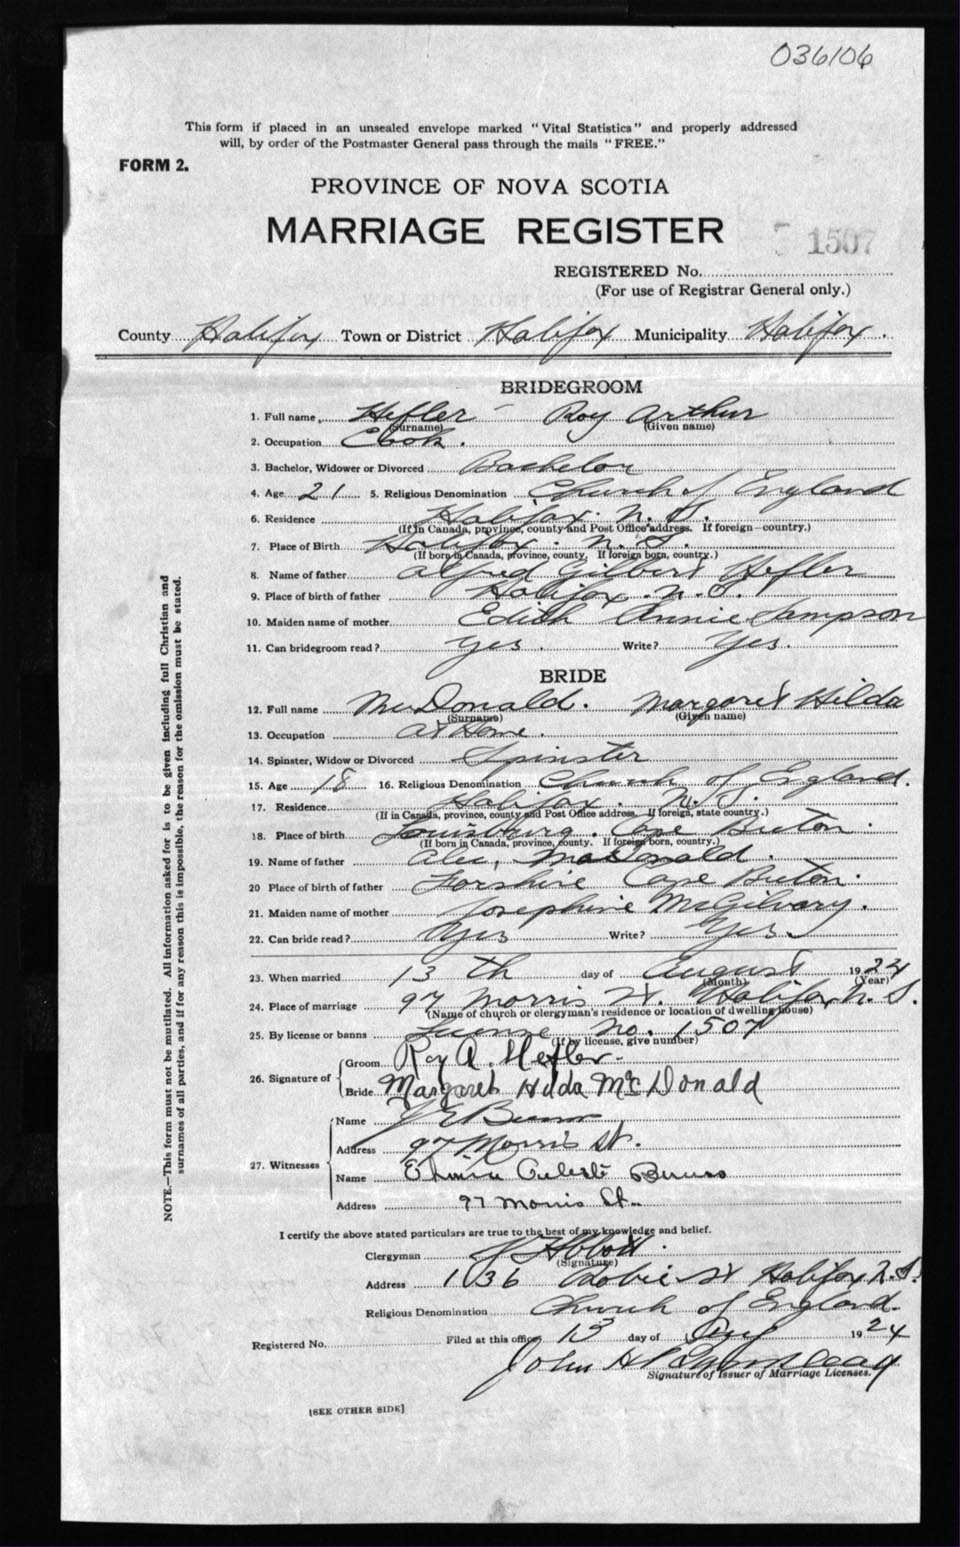 036106
This form if placed in an unsealed envelope marked "Vital Statistics" and properly addressed
will, by order of the Postmaster General pass through the mails "FREE."
FORM 2.
PROVINCE OF NOVA SCOTIA
MARRIAGE REGISTER
1507
REGISTERED No.
(For use of Registrar General only.)
County Halifax Town or District Halifax Municipality Halifax.
BRIDEGROOM
1. Full name Hefler - Roy Arthur
(Surname) (Given name)
2. Occupation Cook.
3. Bachelor, Widower or Divorced Bachelor
4. Age 21 5. Religious Denomination Church of England
6. Residence Halifax. N. S.
(If in Canada, province, county and Post Office address. If foreign—country.)
7. Place of Birth Halifax. N. S.
(If born in Canada, province, county, If foreign born, country.)
8. Name of father Alfred Gilbert Hefler
9. Place of birth of father Halifax. N. S.
10. Maiden name of mother Edith Annie Sampson
11. Can bridegroom read? Yes. Write? Yes.
BRIDE
12. Full name McDonald. Margaret Hilda
(Surname) (Given name)
13. Occupation At Home.
14. Spinster, Widow or Divorced Spinster
15. Age 18 16. Religious Denomination Church of England.
17. Residence Halifax. N. S.
(If in Canada, province, county and Post Office address. If foreign, state country.)
18. Place of birth Louisburg. Cape Breton.
(If born in Canada, province, county. If foreign born, country.)
19. Name of father Alec, MacDonald.
20 Place of birth of father Forshire Cape Breton.
21. Maiden name of mother Josephine McGilvary.
22. Can bride read? Yes Write? Yes.
23. When married 13th day of August 1924
(Month) (Year)
24. Place of marriage 97 Morris St. Halifax N. S.
(Name of church or clergyman's residence or location of dwelling house)
25. By license or banns License No. 1507
(If by license, give number)
26. Signature of
Groom Roy A. Hefler.
Bride Margaret Hilda McDonald
27. Witnesses
Name J E
Address 97 Morris St.
Name
Address 97 Morris St.
I certify the above stated particulars are true to the best of my knowledge and belief.
Clergyman Abbott.
(Signature)
Address 136 Robie St Halifax N. S.
Religious Denomination Church of England.
Registered No. Filed at this office 13 day of Aug 1924
John H
Signature of Issuer of Marriage Licenses.
[SEE OTHER SIDE]
NOTE.—This form must not be mutilated. All information asked for is to be given including full Christian and
surnames of all parties, and if for any reason this is impossible, the reason for the omission must be stated.